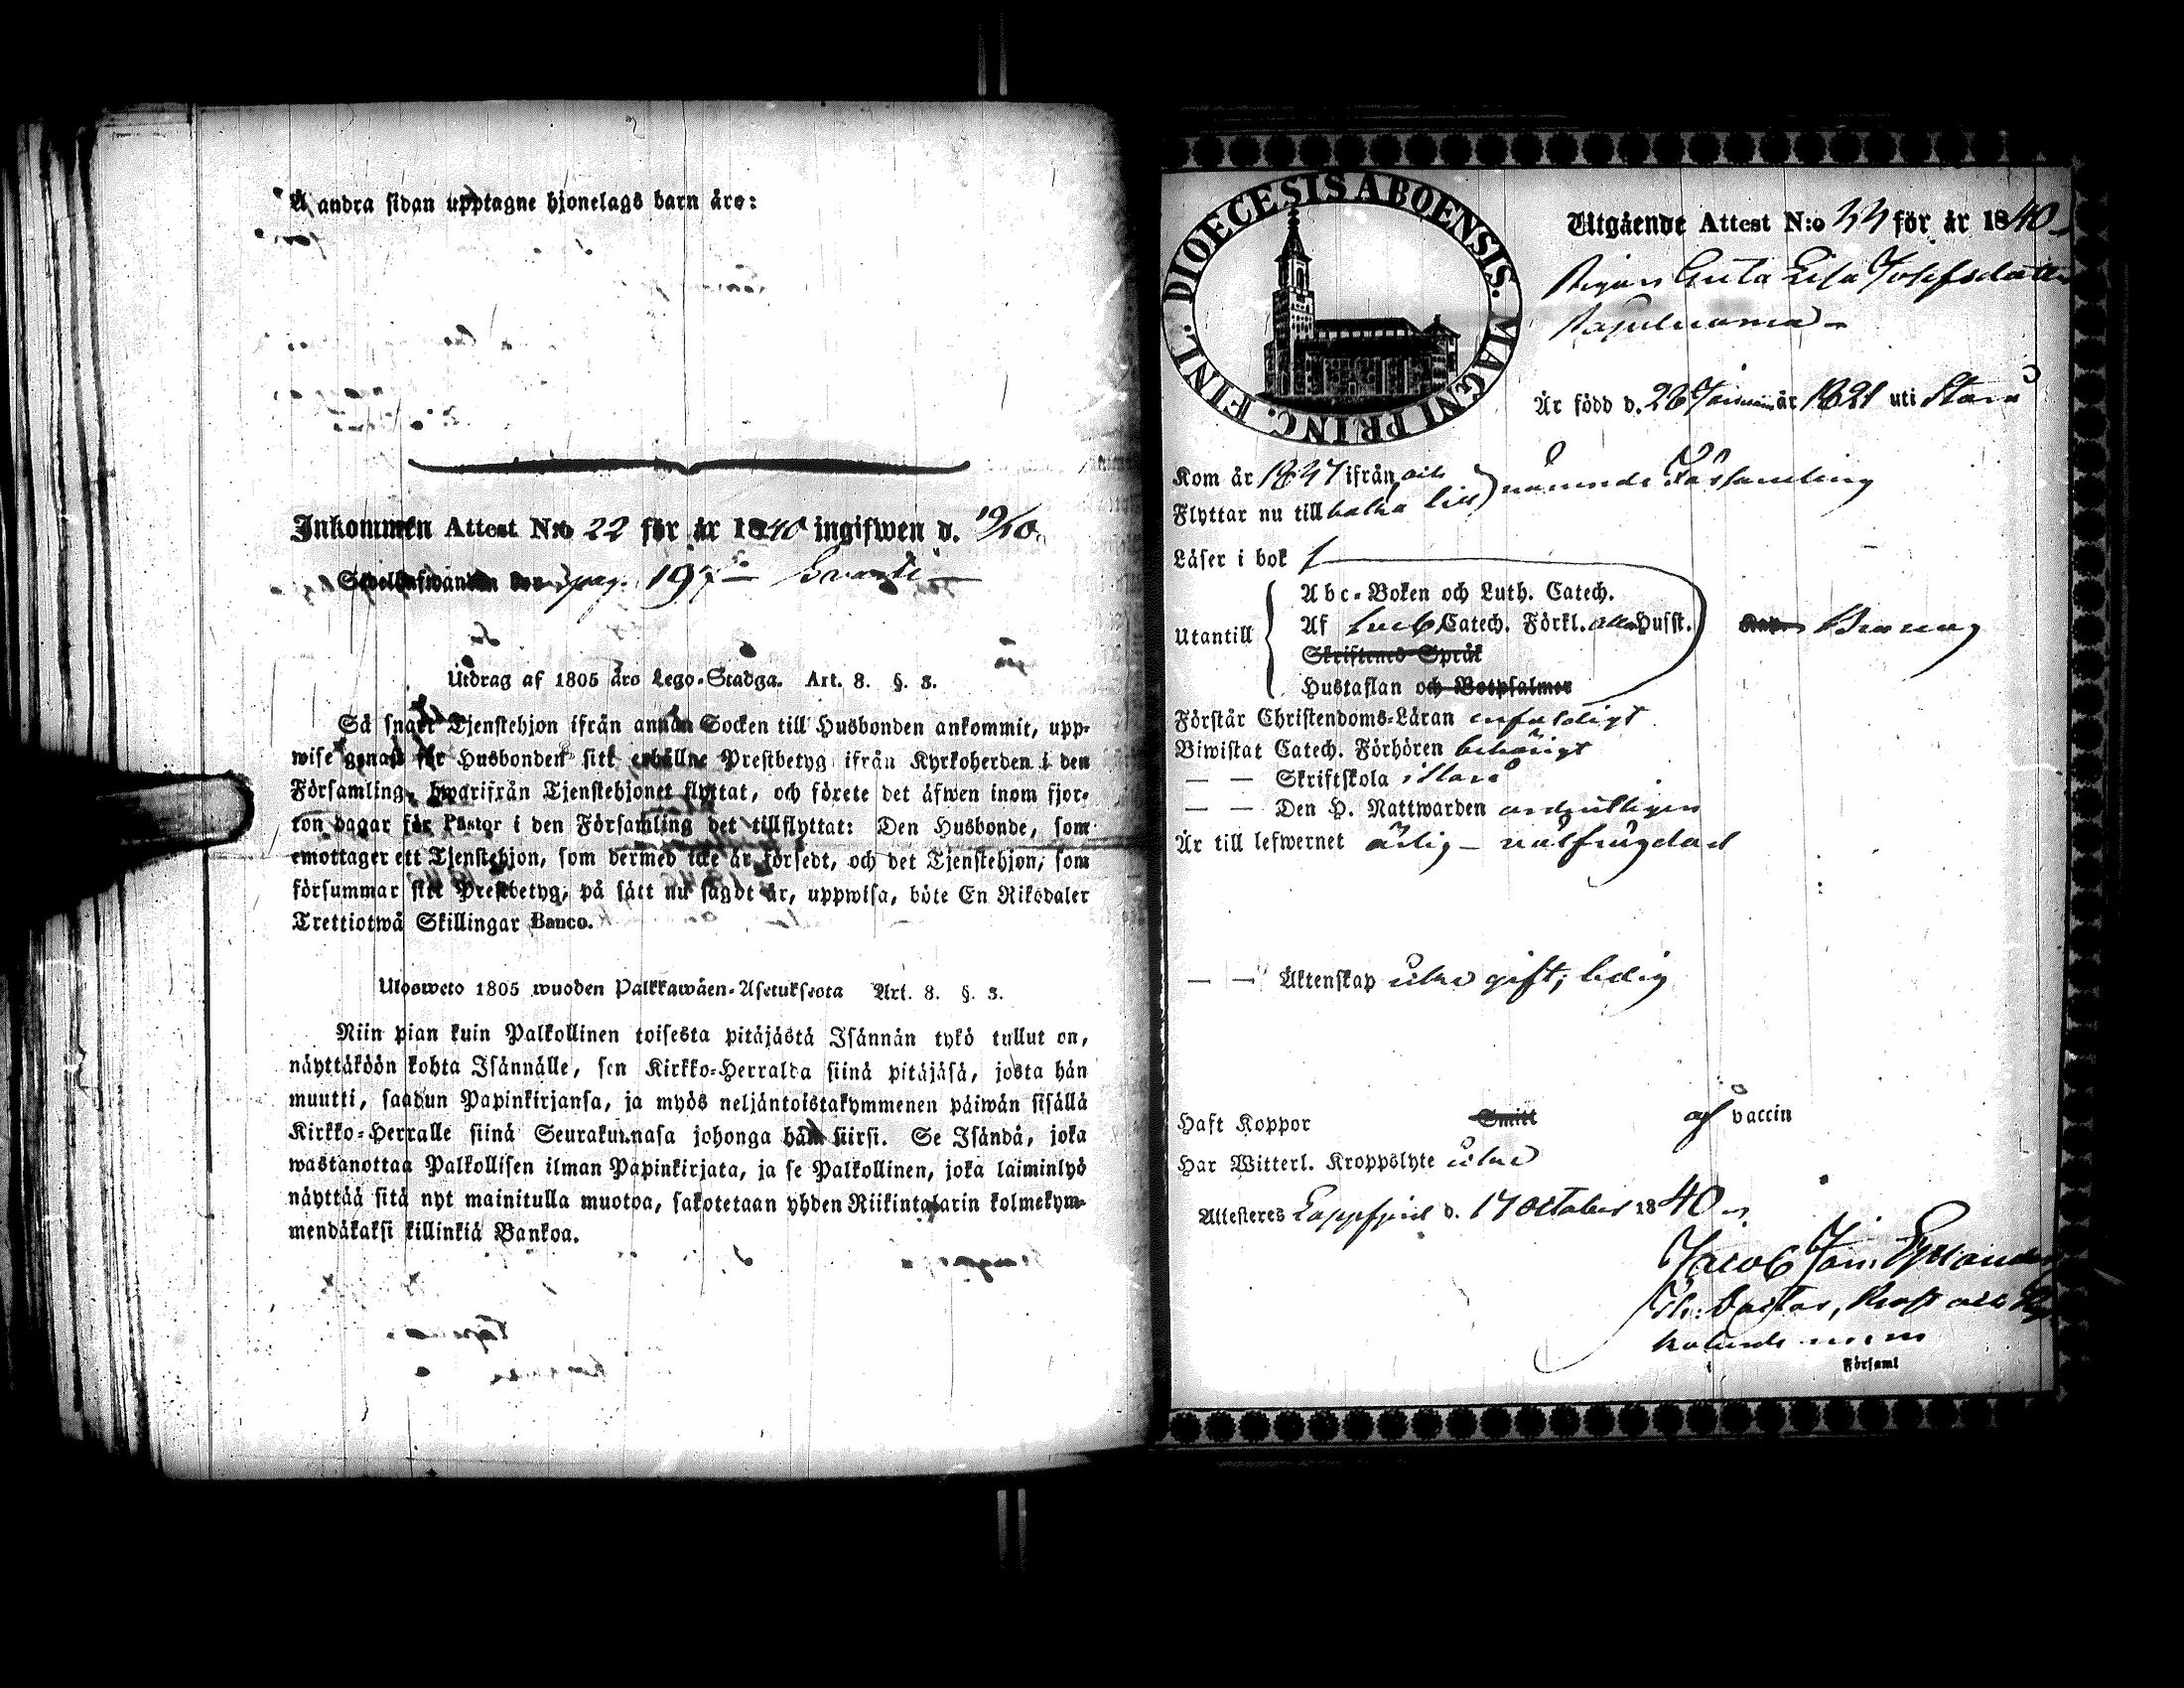 Å andra sidan upptagne hjonelags barn äro:
Inkommen Attest N:o 22 för år 1840 ingifwen d. 19/10.
pag. 197
Utdrag af 1805 års Lego-Stadga. Art. 8. §. 3.
Så snart Tjenstehjon ifrån annan Socken till Husbonden ankommit, upp-
wise genast för Husbonden sitt erhållne Prestbetyg ifrån Kyrkoherden i den
Församling, hwarifrån Tjenstehjonet flyttat, och förete det äfwen inom fjor-
ton dagar för Pastor i den Församling det tillflyttat: Den Husbonde, som
emottager ett Tjenstehjon, som dermed icke är försedt, och det Tjenstehjon, som
försummar sitt Prestbetyg, på sätt nu sagdt är, uppwisa, böte En Riksdaler
Trettiotwå Skillingar Banco.
Ulosweto 1805 wuoden Palkkawäen-Asetuksesta Art. 8. §. 3.
Niin pian kuin Palkollinen toisesta pitäjästä Isännän tykö tullut on,
näyttäköön kohta Isännälle, sen Kirkko-Herralda siinä pitäjäsä, josta hän
muutti, saadun Papinkirjansa, ja myös neljäntoistakymmenen päiwän sisällä
Kirkko-Herralle siinä Seurakunnasa johonga hän siirsi. Se Isändä, joka
wastanottaa Palkollisen ilman Papinkirjata, ja se Palkollinen, joka laiminlyö
näyttää sitä nyt mainitulla muotoa, sakotetaan yhden Riikintalarin kolmekym-
mendäkaksi killinkiä Bankoa.
DIOECESIS ABOENSIS. MAGNI PRINC. FINL.
Utgående Attest N:o 33 för år 1840
Pigan Greta Lisa Josefsdotter
Är född d. 26 Januari år 1821 uti Storå
Kom år 1837 ifrån och
Flyttar nu till baka till } nämnde Församling
Läser i bok
Utantill
Abc-Boken och Luth. Catech.
Af Catech. Förkl. Husst.
Skriftened Språk
Hustaflan och Botpsalmer
Förstår Christendoms-Läran enfaldigt
Biwistat Catech. Förhören behörigt
— — Skriftskola i Storå
— — Den H. Nattwarden ordentligen
Är till lefwernet ärlig – wälfrägdad
— — Äktenskap icke gift, ledig
Haft Koppor Smitt af vaccin
Har Witterl. Kroppslyte icke
Attesteres Lappfjerd d. 17 October 1840
Jacob Joh.
Församl